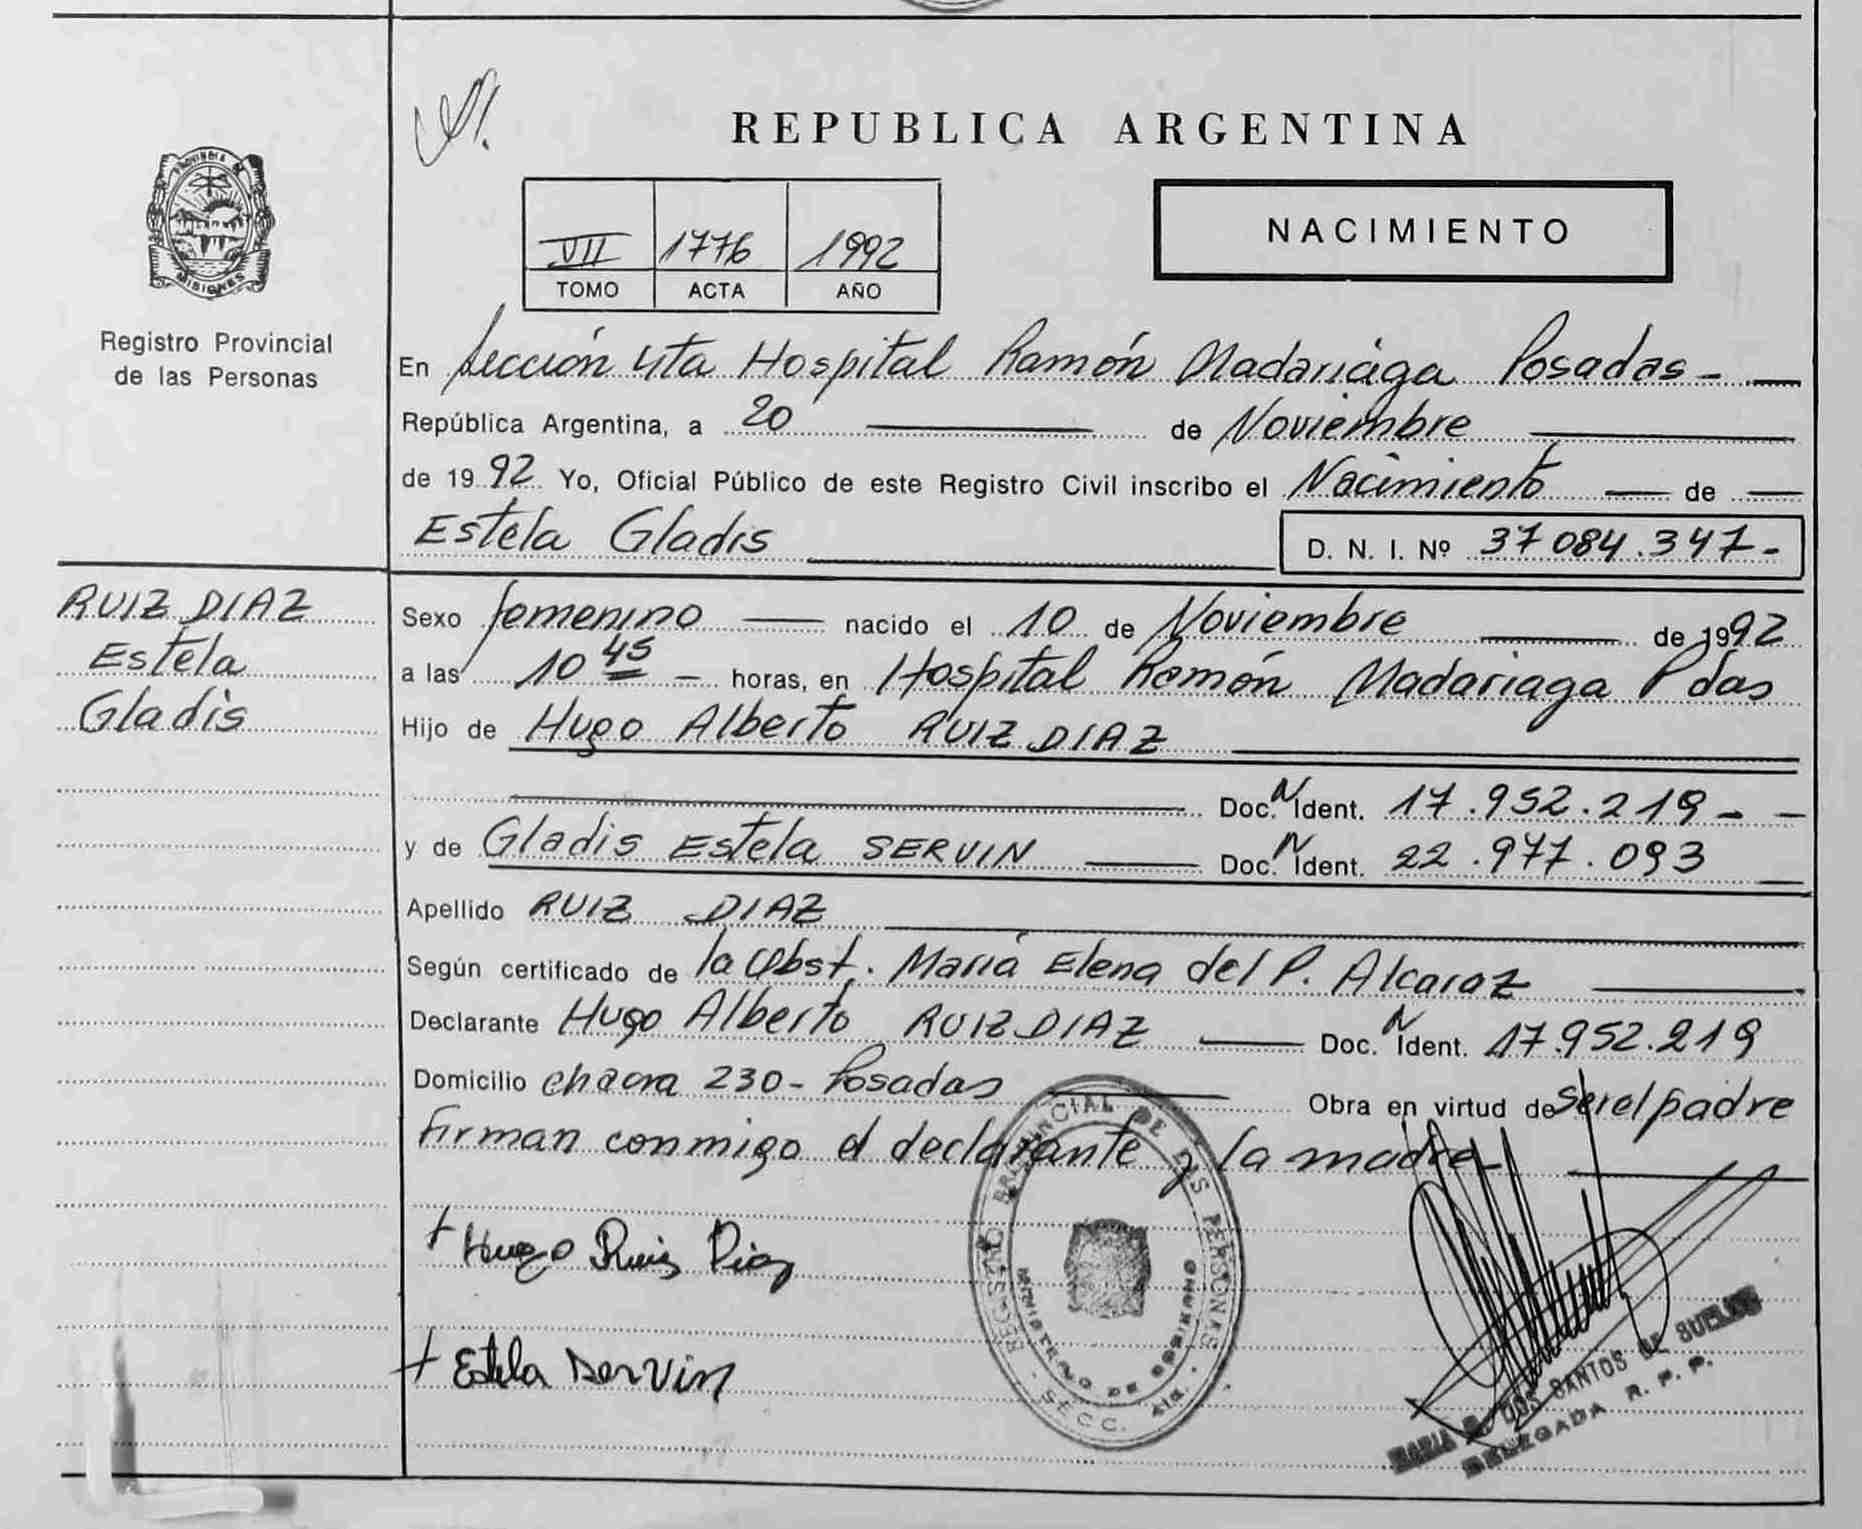 REPUBLICA ARGENTINA
PROVINCIA DE
MISIONES
Registro Provincial
de las Personas
VII 1776 1992
TOMO ACTA AÑO
NACIMIENTO
En Sección 4ta Hospital Ramón Madariaga Posadas -
República Argentina, a 20 de Noviembre
de 1992 Yo, Oficial Público de este Registro Civil inscribo el Nacimiento de
Estela Gladis D. N. I. Nº 37 084.347-
RUIZ DIAZ
Estela
Gladis
Sexo femenino nacido el 10 de Noviembre de 1992
a las 10 45 - horas, en Hospital Ramón Madariaga Pdas
Hijo de Hugo Alberto RUIZ DIAZ
Doc. N Ident. 17.952.219 - -
y de Gladis Estela SERVIN Doc. N Ident. 22.977.093
Apellido RUIZ DIAZ
Según certificado de la Obst. María Elena del P. Alcaraz
Declarante Hugo Alberto RUIZ DIAZ Doc. N Ident. 17.952.219
Domicilio chacra 230- Posadas Obra en virtud de ser el padre
Firman conmigo el declarante y la madre
+ Hugo Ruiz Diaz
+ Estela Servin
REGISTRO PROVINCIAL DE LAS PERSONAS
MINISTERIO DE GOBIERNO
SECC. 4ta.
MARIA DOS SANTOS DE SUELDO
DELEGADA R. P. P.